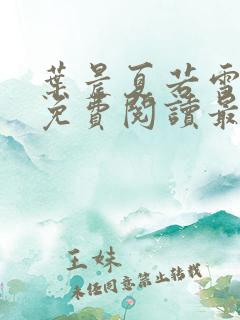 葉晨夏若雪
免費閱讀最
王妹
未經同意禁止轉載